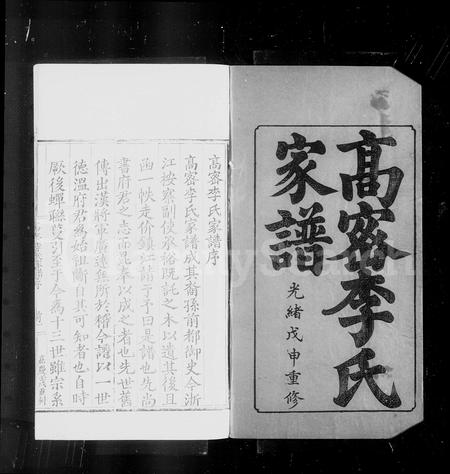 高密李氏
家譜
光緒戊申重修
高密李氏家譜序
高密李氏家譜成其裔孫前都御史今浙
江按察副使承裕既託之木以遺其後且
函一帙走价鎮江請于予曰是譜也先尚
書府君之志而晁奉以成之者也先世舊
傳出漢將軍廣遠無所於稽今譜以一世
德溫府君為始祖斷自其可知者也自時
厥後蟬聯雙引至于今為十三世雖宗系